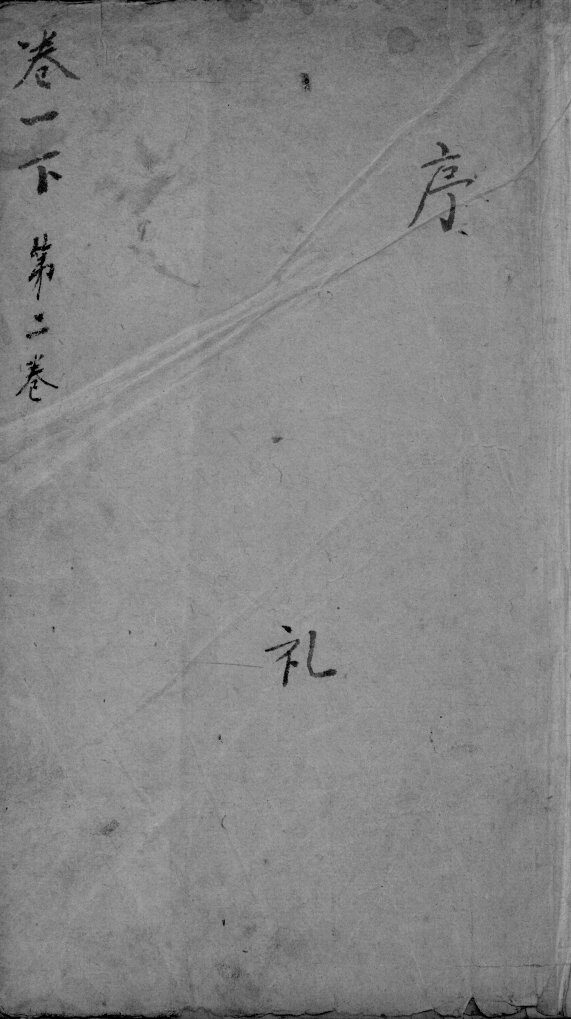 序
礼
卷一下 第二卷